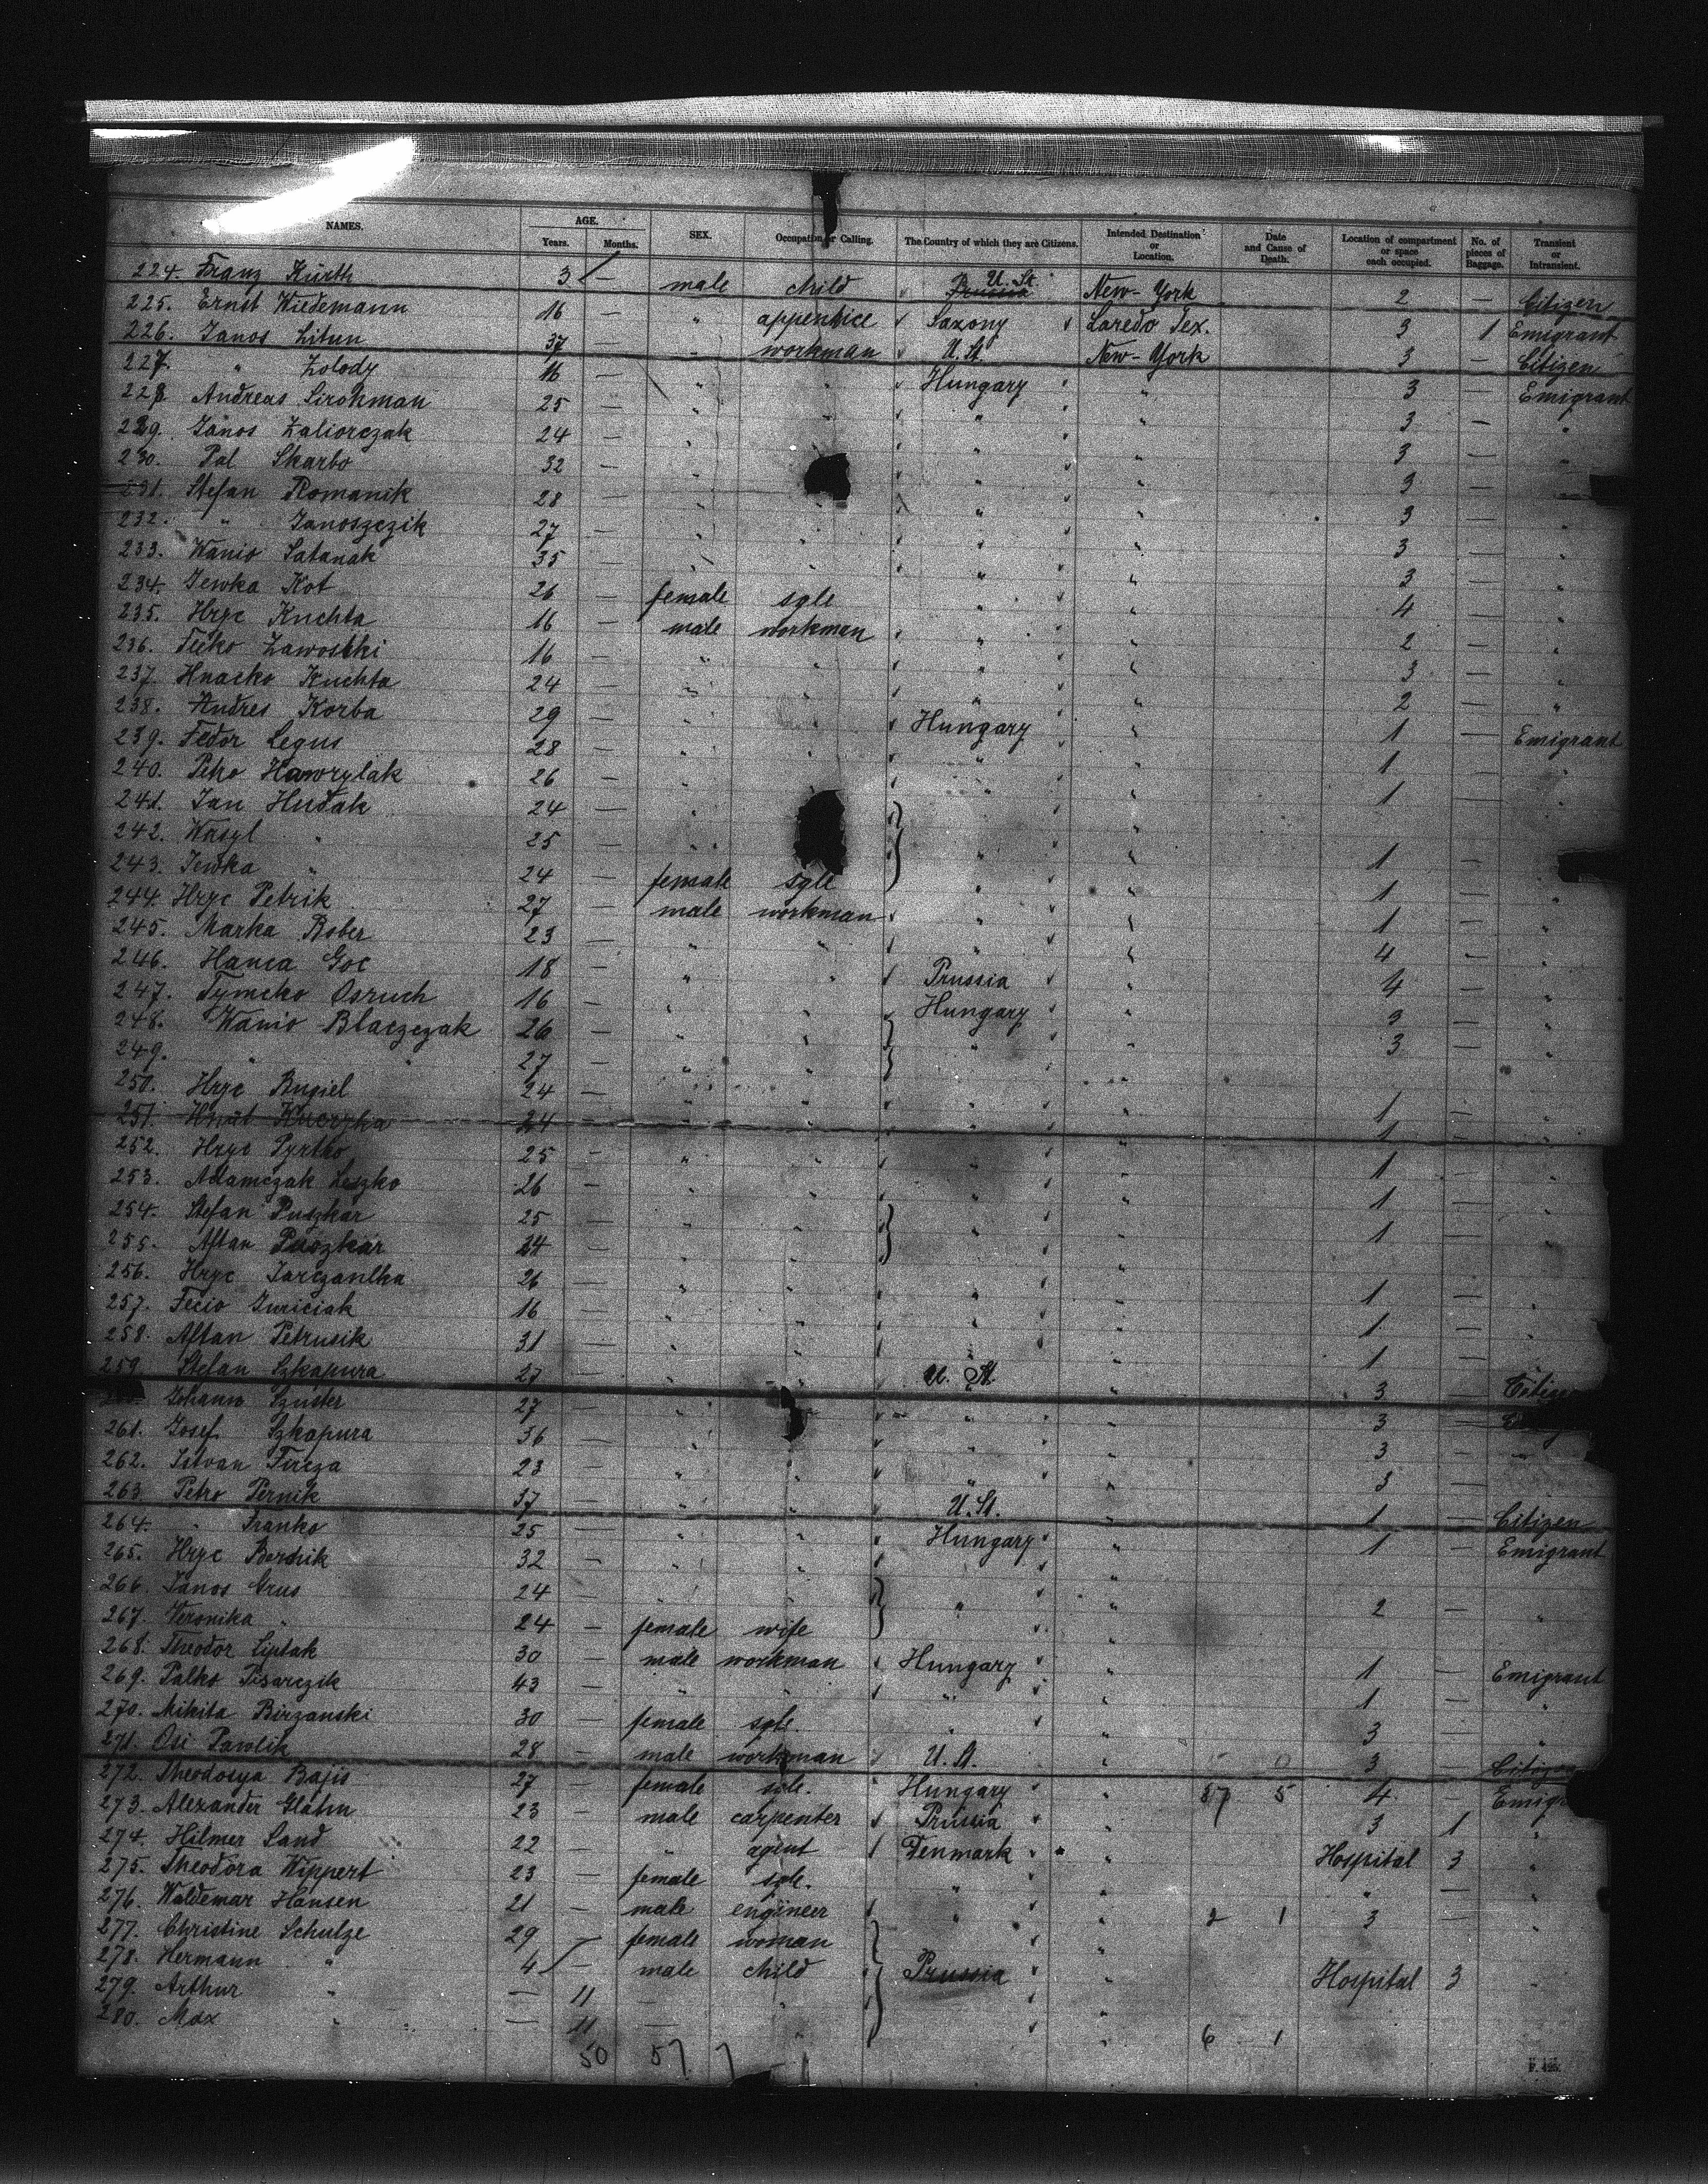 NAMES. AGE. Years. Months. SEX. Occupation or Calling. The Country of which they are Citizens. Intended Destination or Location. Date and Cause of Death. Location of compartment or space each occupied. No. of pieces of Baggage. Transient or Intransient.
224. Franz Kürth 3 — male child Prussia U. St. New-York 2 — Citizen
225. Ernst Wiedemann 16 — " appentice Saxony Laredo Tex. 3 1 Emigrant
226. Janos Litun 37 — " workman U. St. New-York 3 — Citizen
227. " Zolody 16 — " " Hungary " 3 — Emigrant
228 Andreas Sirohman 25 — " " " " 3 — "
229. Janos Zaliorczak 24 — " " " " 3 "
230. Pal Skarbo 32 — " " " 3 —
231. Stefan Romanik 28 — " " " " 3 — "
232. " Janoszczik 27 — " " " " 3 — "
233. Wanio Satanak 35 — " " " " 3 — "
234. Jewka Kot 26 — female sgle " " 4 — "
235. Hryc Kuchta 16 — male workman " " 2 — "
236. Fecko Zawostki 16 — " " " " 3 — "
237. Hnacko Kuchta 24 — " " " " 2 — "
238. Andres Korba 29 — " Hungary " 1 — Emigrant
239. Fedor Legus 28 — " " " 1 — "
240. Petro Hawrylak 26 — " " " 1 — "
241. Jan Hudak 24 — " "
242. Wasyl " 25 — " " " 1 —
243. Jewka " 24 — female sgle " 1 — "
244. Hryc Petrik 27 — male workman " " 1 — "
245. Marka Bober 23 — " " " 4 - "
246. Hanca Goc 18 — " " Prussia " 4 — "
247. Tymcko Osruch 16 — " " Hungary " 3 — "
248. Wanio Blaczczak 26 — " " " " 3 — "
249. " 27 — " " "
250. Hryc Bugiel 24 — " " " " 1 — "
251. Hnat Kuczka 24 " " " " 1 — "
252. Hryc Pyrtko 25 — " " " " 1 — "
253. Adamczak Leszko 26 — " " " " 1 — "
254. Stefan Puszkar 25 — " " " " 1 — "
255. Aftan Puszkar 24 — " " "
256. Hryc Jarczanlka 26 — " " " " 1 — "
257. Fecio Juriciak 16 — " " " " 1 — "
258. Aftan Petrusik 31 — " " " " 1 —
259. Stefan Szkapura 27 — " " U. St. " 3 —
Johann Szuster 27 — " " " 3 —
261. Josef Szkapura 36 — " " " 3 —
262. Istvan Fircza 23 — " " " " 3 —
263. Petro Pernik 37 — " " U. St. " 1 — Citizen
264. " Franko 25 — " " Hungary " 1 — Emigrant
265. Hryc Bernik 32 — " " "
266. Janos Grus 24 — " " " 2 — "
267. Veronika " 24 — female wife "
268. Theodor Liptak 30 — male workman Hungary " 1 — Emigrant
269. Palko Pisarczik 43 — " " " " 1 — "
270. Mikita Birzanski 30 — female sgle. " " 3 — "
271. Osi Pawlik 28 — male workman U. St. " 3 —
272. Theodosya Bajis 27 — female sgle. Hungary " 87 5 4 —
273. Alexander Glahn 23 — male carpenter Prussia " 3 1 "
274. Hilmer Sand 22 — " agent Denmark " Hospital 3 "
275. Theodora Wippert 23 — female sgle. " " " —
276. Waldemar Hansen 21 — male engineer " " 2 1 3 — "
277. Christine Schulze 29 — female woman "
278. Hermann " 4 — male child Prussia " Hospital 3 "
279. Arthur " — 11 — " "
280. Max " — 11 — " " 6 1
50 57